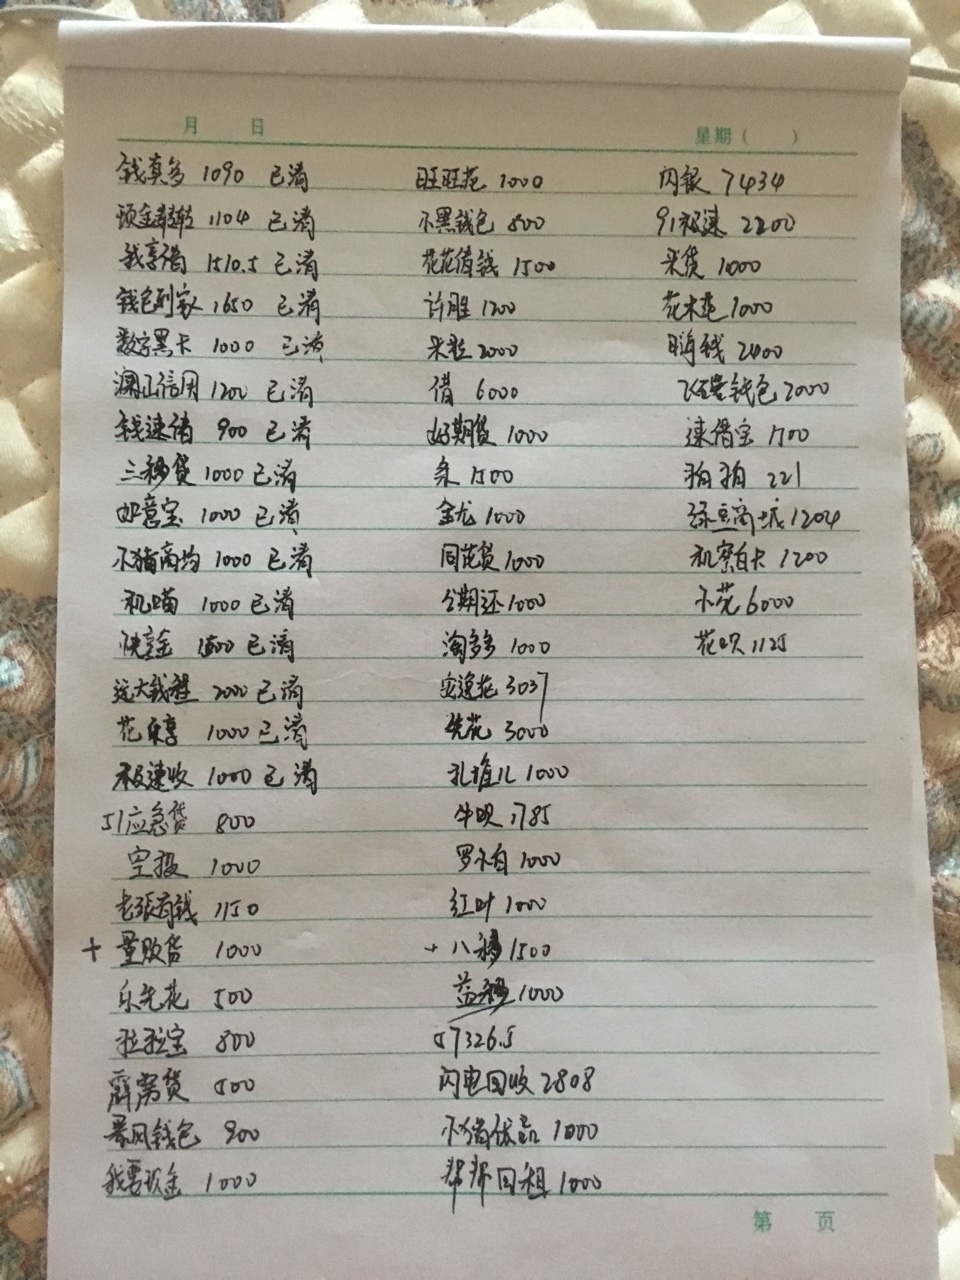 月 日
星期( )
钱真多 1090 已清
现金转转 1104 已清
我享借 1510.5 已清
钱包到家 1650 已清
数字黑卡 1000 已清
澜山信用 1200 已清
钱速借 900 已清
三秒贷 1000 已清
如意宝 1000 已清
小猪商均 1000 已清
机喵 1000 已清
快享金 1500 已清
远大钱程 2000 已清
花乐享 1000 已清
极速收 1000 已清
51应急贷 800
空投 1000
老张有钱 1150
+ 1000
乐先花 500
拉拉宝 800
霹雳贷 500
暴风钱包 900
我要现金 1000
旺旺花 1000
小黑钱包 800
花花值钱 1500
许胜 1200
米粒 2000
借 6000
好期贷 1000
条 1500
金龙 1000
同花贷 1000
分期还 1000
淘多多 1000
安逸花 3037
先花 3000
1000
牛呗 1785
罗卜白 1000
红叶 1000
+ 八秒 1500
1000
57326.5
闪电回收 2808
小猪优品 1000
帮帮回租 1000
闪银 7434
91极速 2200
米贷 1000
花木莲 1000
嗨钱 2400
钱包 2000
速借宝 1500
拍拍 221
绿豆商城 1204
机察白卡 1200
小花 6000
花呗 1125
第 页